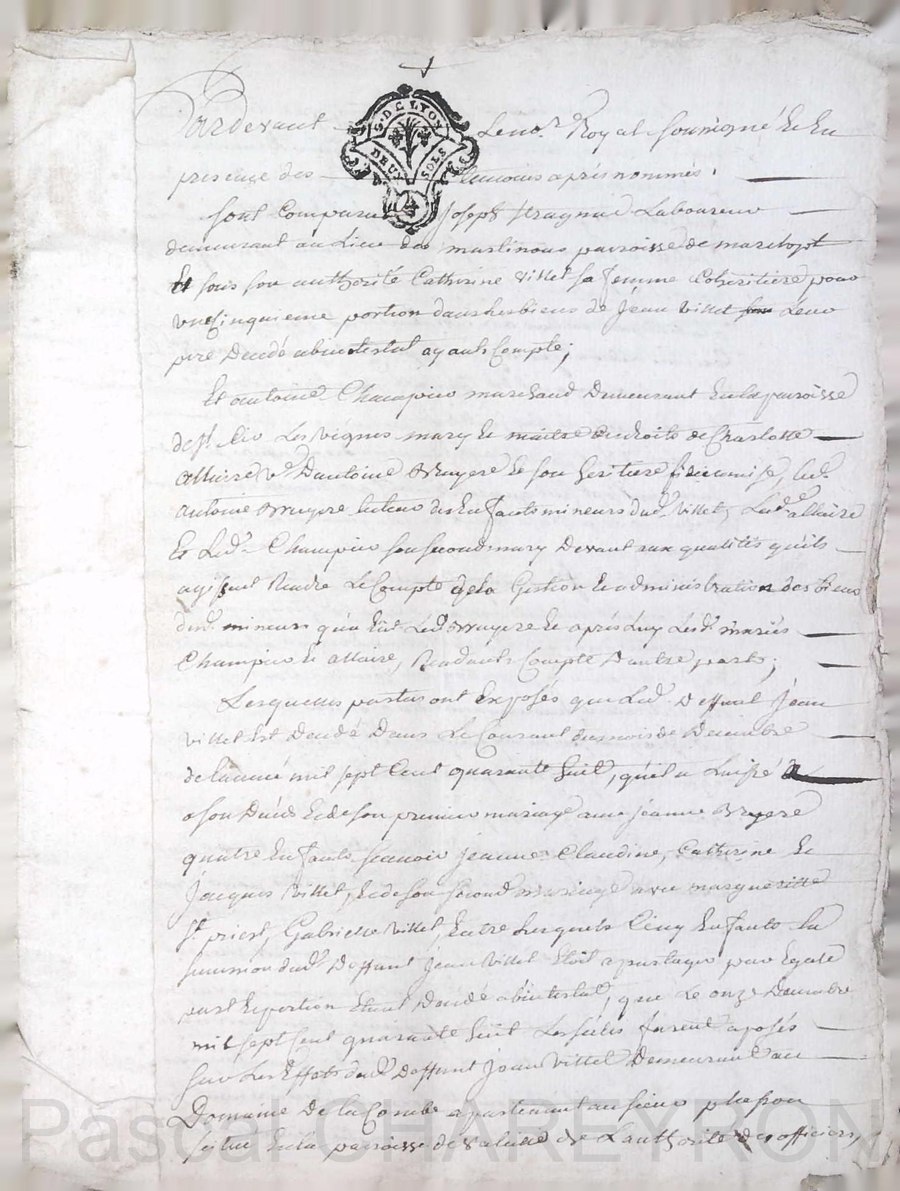 Pardevant Le no.re Royal soussigné et en
G. DE LYON
DEUX SOLS
presence des temoins apris nommés,
sont comparu Joseph Laboureur
demeurant au Lieu des martinons parroisse de marclopt
Et sous son authorité Catherine Villet sa femme Coheritiere pour
une Cinquieme portion dans les biens de Jean Villet Leur
pere Decedé abintestat ayants Compte,
Et antoine Champier marchand Demeurant En la parroisse
de st. Les Vignes mary et maitre des droits de Charlotte
allaire v.e Dantoine Bruyere et son heritiere fideicomise, led.
antoine Bruyere tuteur des Enfants mineurs dud. Villet, Lad. allaire
Et Led. Champier son second mary Devant aux qualités qu'ils
agissent Rendre Le Compte de la Gestion et administration des biens
desd. mineurs qu'a Eüe Led. Bruyere et après Luy Lesd. mariés
Champier et allaire, Rendants Compte Dautre part;
Lesquelles parties ont Exposés que Led. Deffunt Jean
Villet Est Decedé Dans Le Courant du mois de Decembre
de lannée mil sept Cent quarante huit, qu'il a Laissé
a son Decés Et de son premier mariage avec Jeanne Bruyere
quatre Enfants scavoir Jeanne, Claudine, Catherine Et
Jacques Villet, Et de son second mariage avec margueritte
st. priest, Gabrielle Villet, Entre Lesquels Cinq Enfants La
succession dud. Deffunt Jean Villet Etoit a partager par Egale
part Et portion Etant Decedé abintestat, que Le onze Decembre
mil sept cent quarante huit Les scelés furent aposés
sur Les Effets dud. Deffunt Jean Villet Demeurant au
Domaine De la Combe apartenant au sieur
situé En la parroisse de de Lauthorité des officiers,
Pascal CHAREYRON